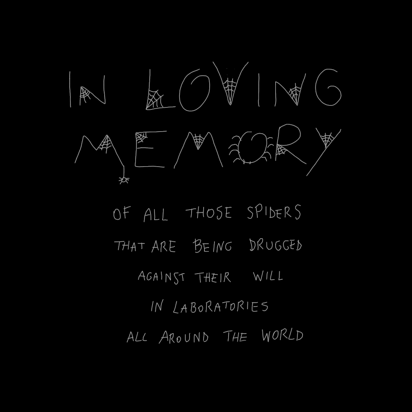 IN LOVING
MEMORY
OF ALL THOSE SPIDERS
THAT ARE BEING DRUGGED
AGAINST THEIR WILL
IN LABORATORIES
ALL AROUND THE WORLD